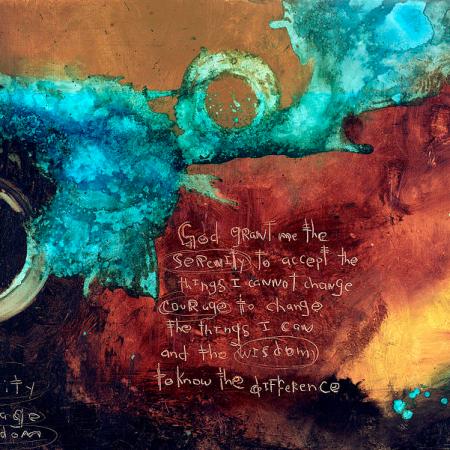 God grant me the
serenity to accept the
things I cannot change
courage to change
the things I can
and the wisdom
to know the difference
ity
age
dom